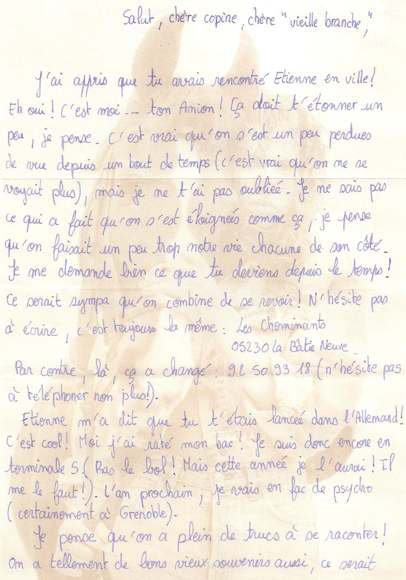 Salut, chère copine, chère "vieille branche,"
J'ai appris que tu avais rencontré Etienne en ville!
Eh oui! C'est moi ... ton Anion! Ça doit t'étonner un
peu, je pense. C'est vrai qu'on s'est un peu perdues
de vue depuis un bout de temps (c'est vrai qu'on ne se
voyait plus), mais je ne t'ai pas oubliée. Je ne sais pas
ce qui a fait qu'on s'est éloignées comme ça, je pense
qu'on faisait un peu trop notre vie chacune de son côté.
Je me demande bien ce que tu deviens depuis le temps!
Ce serait sympa qu'on combine de se revoir! N'hésite pas
à écrire, c'est toujours la même : Les Cheminants
05230 La Bâtie Neuve
Par contre, là, ça a changé : 92 50 93 18 (n'hésite pas
à téléphoner non plus!).
Etienne m'a dit que tu t'étais lancée dans l'Allemand!
C'est cool! Moi j'ai raté mon bac! Je suis donc encore en
terminale S (Ras le bol! Mais cette année je l'aurai! Il
me le faut!). L'an prochain, je vais en fac de psycho
(certainement à Grenoble).
Je pense qu'on a plein de trucs à se raconter!
On a tellement de bons vieux souvenirs aussi, ce serait